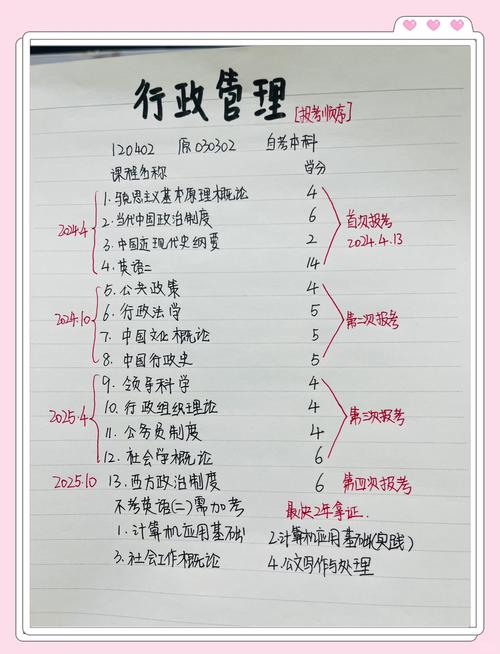 行政管理 [报考顺序]
120402 原030302 自考本科
课程名称 学分
1. 马克思主义基本原理概论 4
2. 当代中国政治制度 6
3. 中国近现代史纲要 2
4. 英语二 14
2024.4
首次报考
2024.4.13
5. 公共政策 4
6. 行政法学 5
7. 中国文化概论 5
8. 中国行政史 5
2024.10
第二次报考
9. 领导科学 4
10. 行政组织理论 4
11. 公务员制度 4
12. 社会学概论 6
2025.4
第三次报考
2025.10 13. 西方政治制度 6 第四次报考
不考英语(二)需加考 最快2年拿证.
1. 计算机应用基础 2. 计算机应用基础(实践)
3. 社会工作概论 4. 公文写作与处理